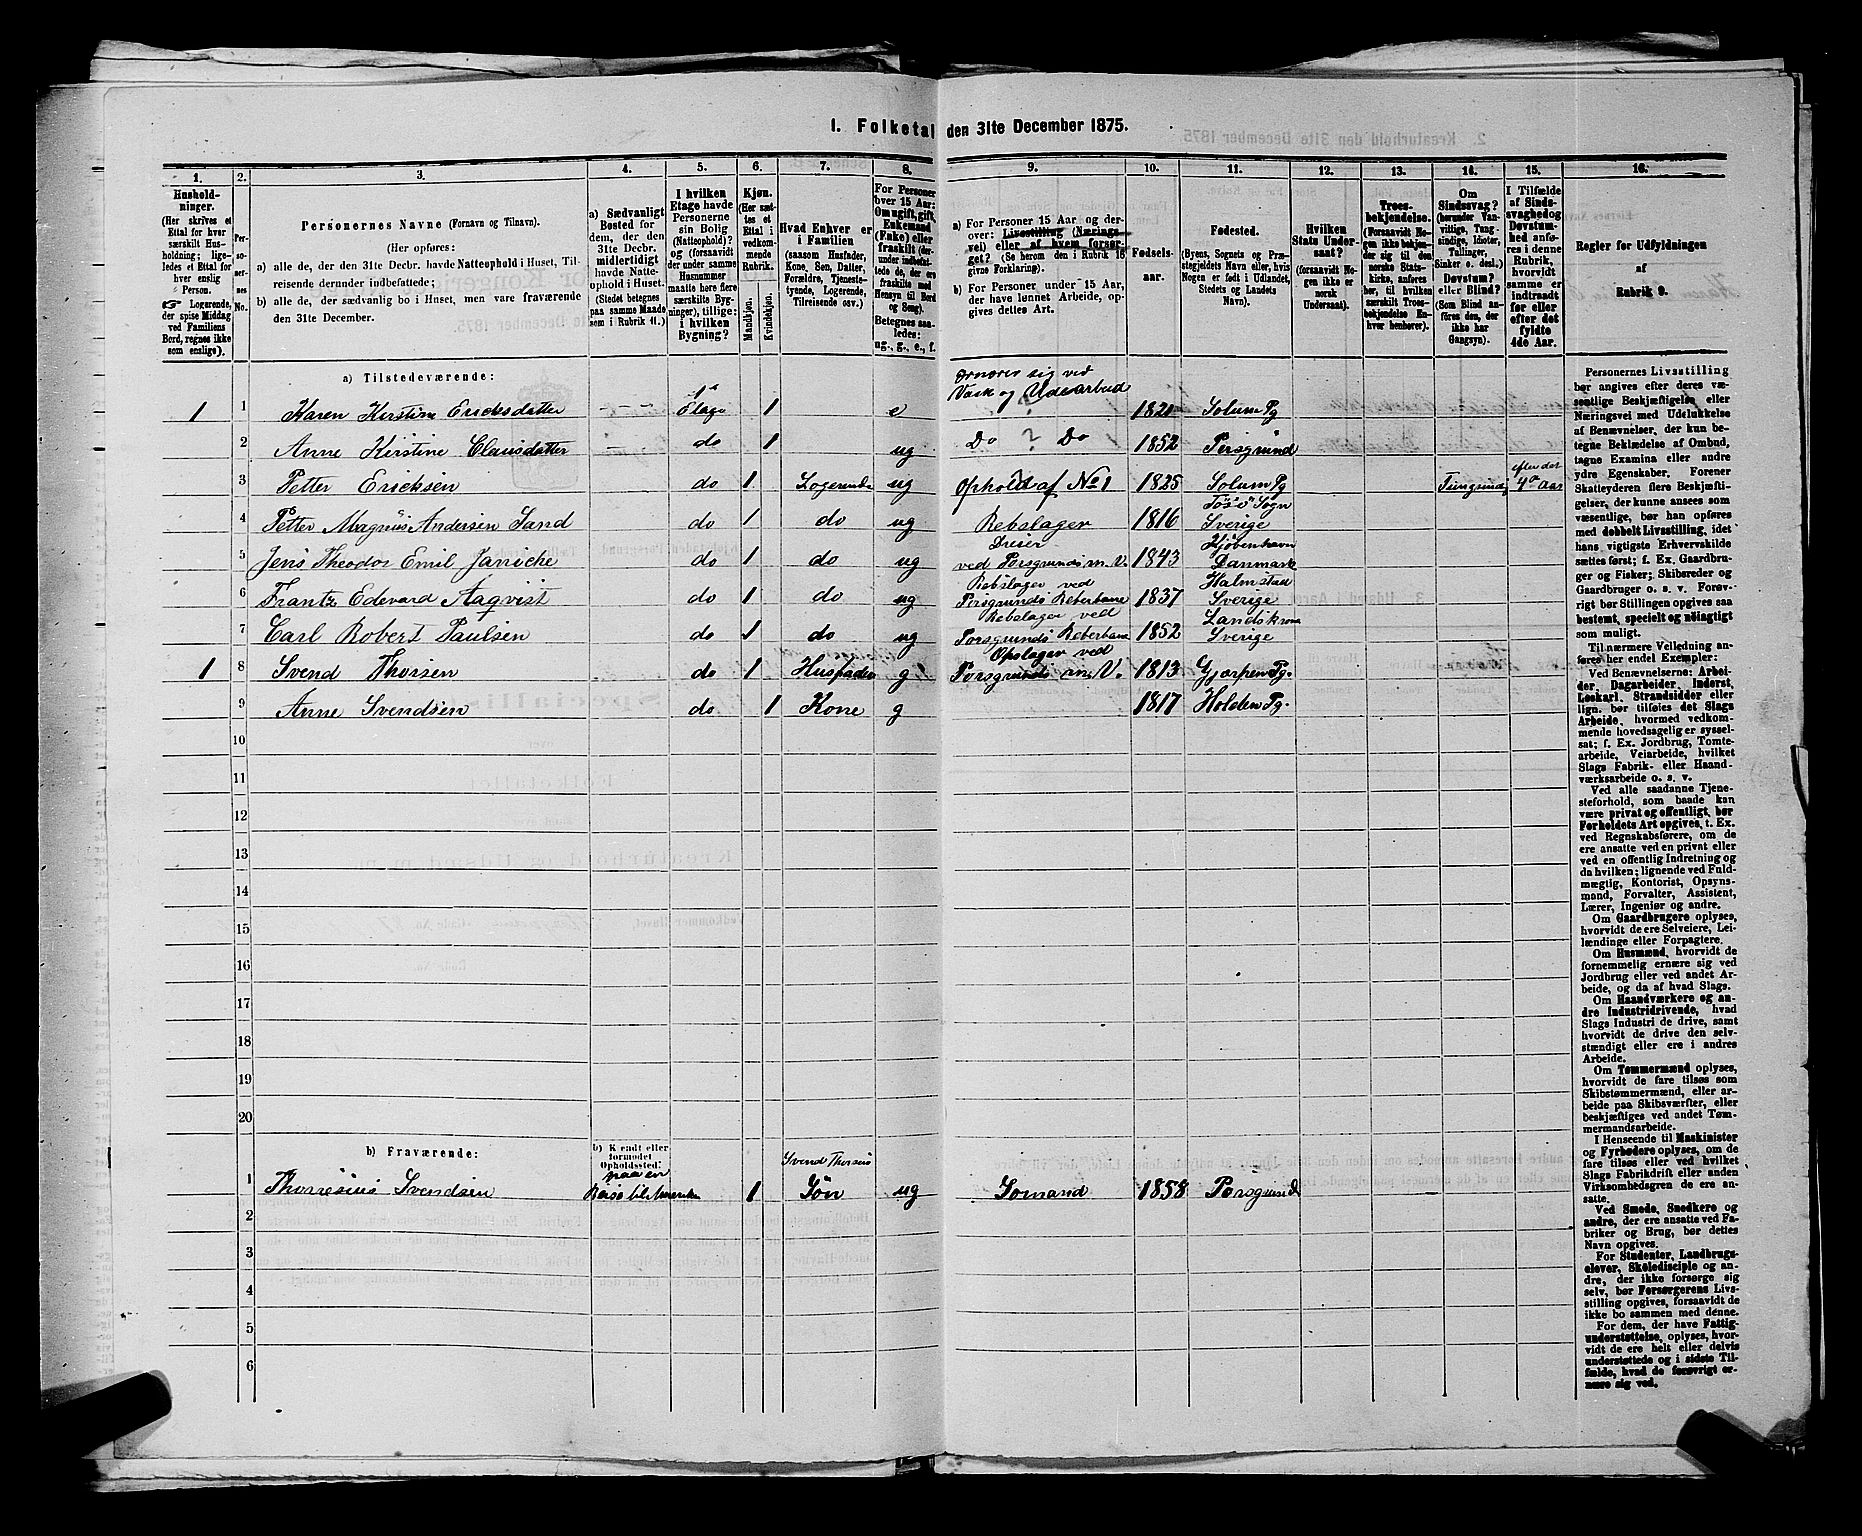 1. Folketal den 31te December 1875.
1. 2. 3. 4. 5. 6. 7. 8. 9. 10. 11. 12. 13. 14. 15. 16.
Hushold-
ninger.
(Her skrives et
Ettal for hver
særskilt Hus-
holdning; lige-
ledes et Ettal for
hver enslig
Person.
☞ Logerende,
der spise Middag
ved Familiens
Bord, regnes ikke
som enslige).
Per-
so-
ner-
nes
No.
Personernes Navne (Fornavn og Tilnavn).
(Her opføres:
a) alle de, der den 31te Decbr. havde Natteophold i Huset, Til-
reisende derunder indbefattede;
b) alle de, der sædvanlig bo i Huset, men vare fraværende
den 31te December.
a) Sædvanligt
Bosted for
dem, der den
31te Decbr.
midlertidigt
havde Natte-
ophold i Huset.
(Stedet betegnes
paa samme Maade
som i Rubrik 11.)
I hvilken
Etage havde
Personerne
sin Bolig
(Natteophold)?
og (forsaavidt
der under samme
Husnummer
maatte høre flere
særskilte Byg-
ninger), tillige:
i hvilken
Bygning?
Kjøn.
(Her sæt-
tes et
Ettal i
vedkom-
mende
Rubrik.
Mandkjøn.
Kvindekjøn.
Hvad Enhver er
i Familien
(saasom Husfader,
Kone, Søn, Datter,
Forældre, Tjeneste-
tyende, Logerende,
Tilreisende osv.)
For Personer
over 15 Aar:
Om ugift, gift,
Enkemand
(Enke) eller
fraskilt (der-
under indbefat-
tede de, der ere
fraskilte med
Hensyn til Bord
og Seng).
Betegnes saa-
ledes:
ug., g., e., f.
a) For Personer 15 Aar og der-
over: Livsstilling (Nærings-
vei) eller af hvem forsør-
get? (Se herom den i Rubrik 16
givne Forklaring).
b) For Personer under 15 Aar,
der have lønnet Arbeide, op-
gives dettes Art.
Fødsels-
aar.
Fødested.
(Byens, Sognets og Præ-
stegjeldets Navn, eller, hvis
Nogen er født i Udlandet,
Stedets og Landets
Navn).
Hvilken
Stats Under-
saat?
(forsaavidt No-
gen ikke er
norsk
Undersaat).
Troes-
bekjendelse.
(Forsaavidt No-
gen ikke bekjen-
der sig til den
norske Stats-
kirke, anføres
her, til hvilken
særskilt Troes-
bekjendelse En-
hver henhører).
Om
Sindssvag?
(herunder Van-
vittige, Tung-
sindige, Idioter,
Tullinger,
Sinker o. desl.)
Døvstum?
eller Blind?
(Som Blind an-
føres den, der
ikke har
Gangsyn).
I Tilfælde
af Sinds-
svaghed og
Døvstum-
hed anfø-
res i denne
Rubrik,
hvorvidt
samme er
indtraadt
før eller
efter det
fyldte
4de Aar.
Regler for Udfyldningen
af
Rubrik 9.
a) Tilstedeværende:
Ernærer sig ved
1 1 Karen Kirstine Ericksdatter 1ste Etage 1 e Vask og Udearbeid 1821 Solum Pg
2 Anne Kirstine Clausdatter do 1 ug Do ? Do 1852 Porsgrund
3 Petter Ericksen do 1 Logerende ug Opholdt af No 1 1825 Solum Pg Tungsindig efter det 4de Aar
4 Petter Magnus Andersen Sand do 1 do ug Rebslager 1816 Tösö Sogn Sverige
5 Jens Theodor Emil Janiche do 1 do ug Dreier ved Porsgrunds m. V. 1843 Kjöbenhavn Danmark
6 Frantz Edevard Aaqvist do 1 do ug Rebslager ved Porsgrunds Reberbane 1837 Halmstad Sverige
7 Carl Robert Paulsen do 1 do ug Rebslager ved Porsgrunds Reberbane 1852 Landskrona Sverige
1 8 Svend Thorsen do 1 Husfader g Opslager ved Porsgrunds m. V. 1813 Gjerpen Pg.
9 Anne Svendsen do 1 Kone g 1817 Holden Pg.
10
11
12
13
14
15
16
17
18
19
20
b) Fraværende:
b) Kjendt eller
formodet
Opholdssted.
1 Thorresius Svendsen paa en Reise til Amerika 1 Svend Thorsens Sön ug Sömand 1858 Porsgrund
2
3
4
5
6
Personernes Livsstilling
bør angives efter deres væ-
sentlige Beskjæftigelse eller
Næringsvei med Udelukkelse
af Benævnelser, der kun be-
tegne Beklædelse af Ombud,
tagne Examina eller andre
ydre Egenskaber. Forener
Skatteyderen flere Beskjæfti-
gelser, der kunne ansees som
væsentlige, bør han opføres
med dobbelt Livsstilling, idet
hans vigtigste Erhvervskilde
sættes først; f. Ex. Gaardbru-
ger og Fisker; Skibsreder og
Gaardbruger o. s. v. Forøv-
rigt bør Stillingen opgives saa
bestemt, specielt og nøiagtigt
som muligt.
Til nærmere Veiledning an-
føres her endel Exempler:
Ved Benævnelserne: Arbei-
der, Dagarbeider, Inderst,
Løskarl, Strandsidder eller
lign. bør tilføies det Slags
Arbeide, hvormed vedkom-
mende hovedsagelig er syssel-
sat; f. Ex. Jordbrug, Tomte-
arbeide, Veiarbeide, hvilket
Slags Fabrik- eller Haand-
værksarbeide o. s. v.
Ved alle saadanne Tjene-
steforhold, som baade kan
være privat og offentligt, bør
Forholdets Art opgives, t. Ex.
ved Regnskabsførere, om de
ere ansatte ved en privat eller
ved en offentlig Indretning og
da hvilken; lignende ved Fuld-
mægtig, Kontorist, Opsyns-
mand, Forvalter, Assistent,
Lærer, Ingeniør og andre.
Om Gaardbrugere oplyses,
hvorvidt de ere Selveiere, Lei-
lændinge eller Forpagtere.
Om Husmænd, hvorvidt de
fornemmelig ernære sig ved
Jordbrug eller ved andet Ar-
beide, og da af hvad Slags.
Om Haandværkere og an-
dre Industridrivende, hvad
Slags Industri de drive, samt
hvorvidt de drive den selv-
stændigt eller ere i andres
Arbeide.
Om Tømmermænd oplyses,
hvorvidt de fare tilsøs som
Skibstømmermænd, eller ar-
beide paa Skibsværfter, eller
beskjæftiges ved andet Tøm-
mermandsarbeide.
I Henseende til Maskinister
og Fyrbødere oplyses, om de
fare tilsøs eller ved hvilket
Slags Fabrikdrift eller anden
Virksomhedsgren de ere an-
satte.
Ved Smede, Snedkere og
andre, der ere ansatte ved Fa-
briker og Brug, bør dettes
Navn opgives.
For Studenter, Landbrugs-
elever, Skoledisciple og an-
dre, der ikke forsørge sig
selv, bør Forsørgerens Livs-
stilling opgives, forsaavidt de
ikke bo sammen med denne.
For dem, der have Fattig-
understøttelse, oplyses, hvor-
vidt de ere helt eller delvis
understøttede og i sidste Til-
fælde, hvad de forøvrigt er-
nære sig ved.